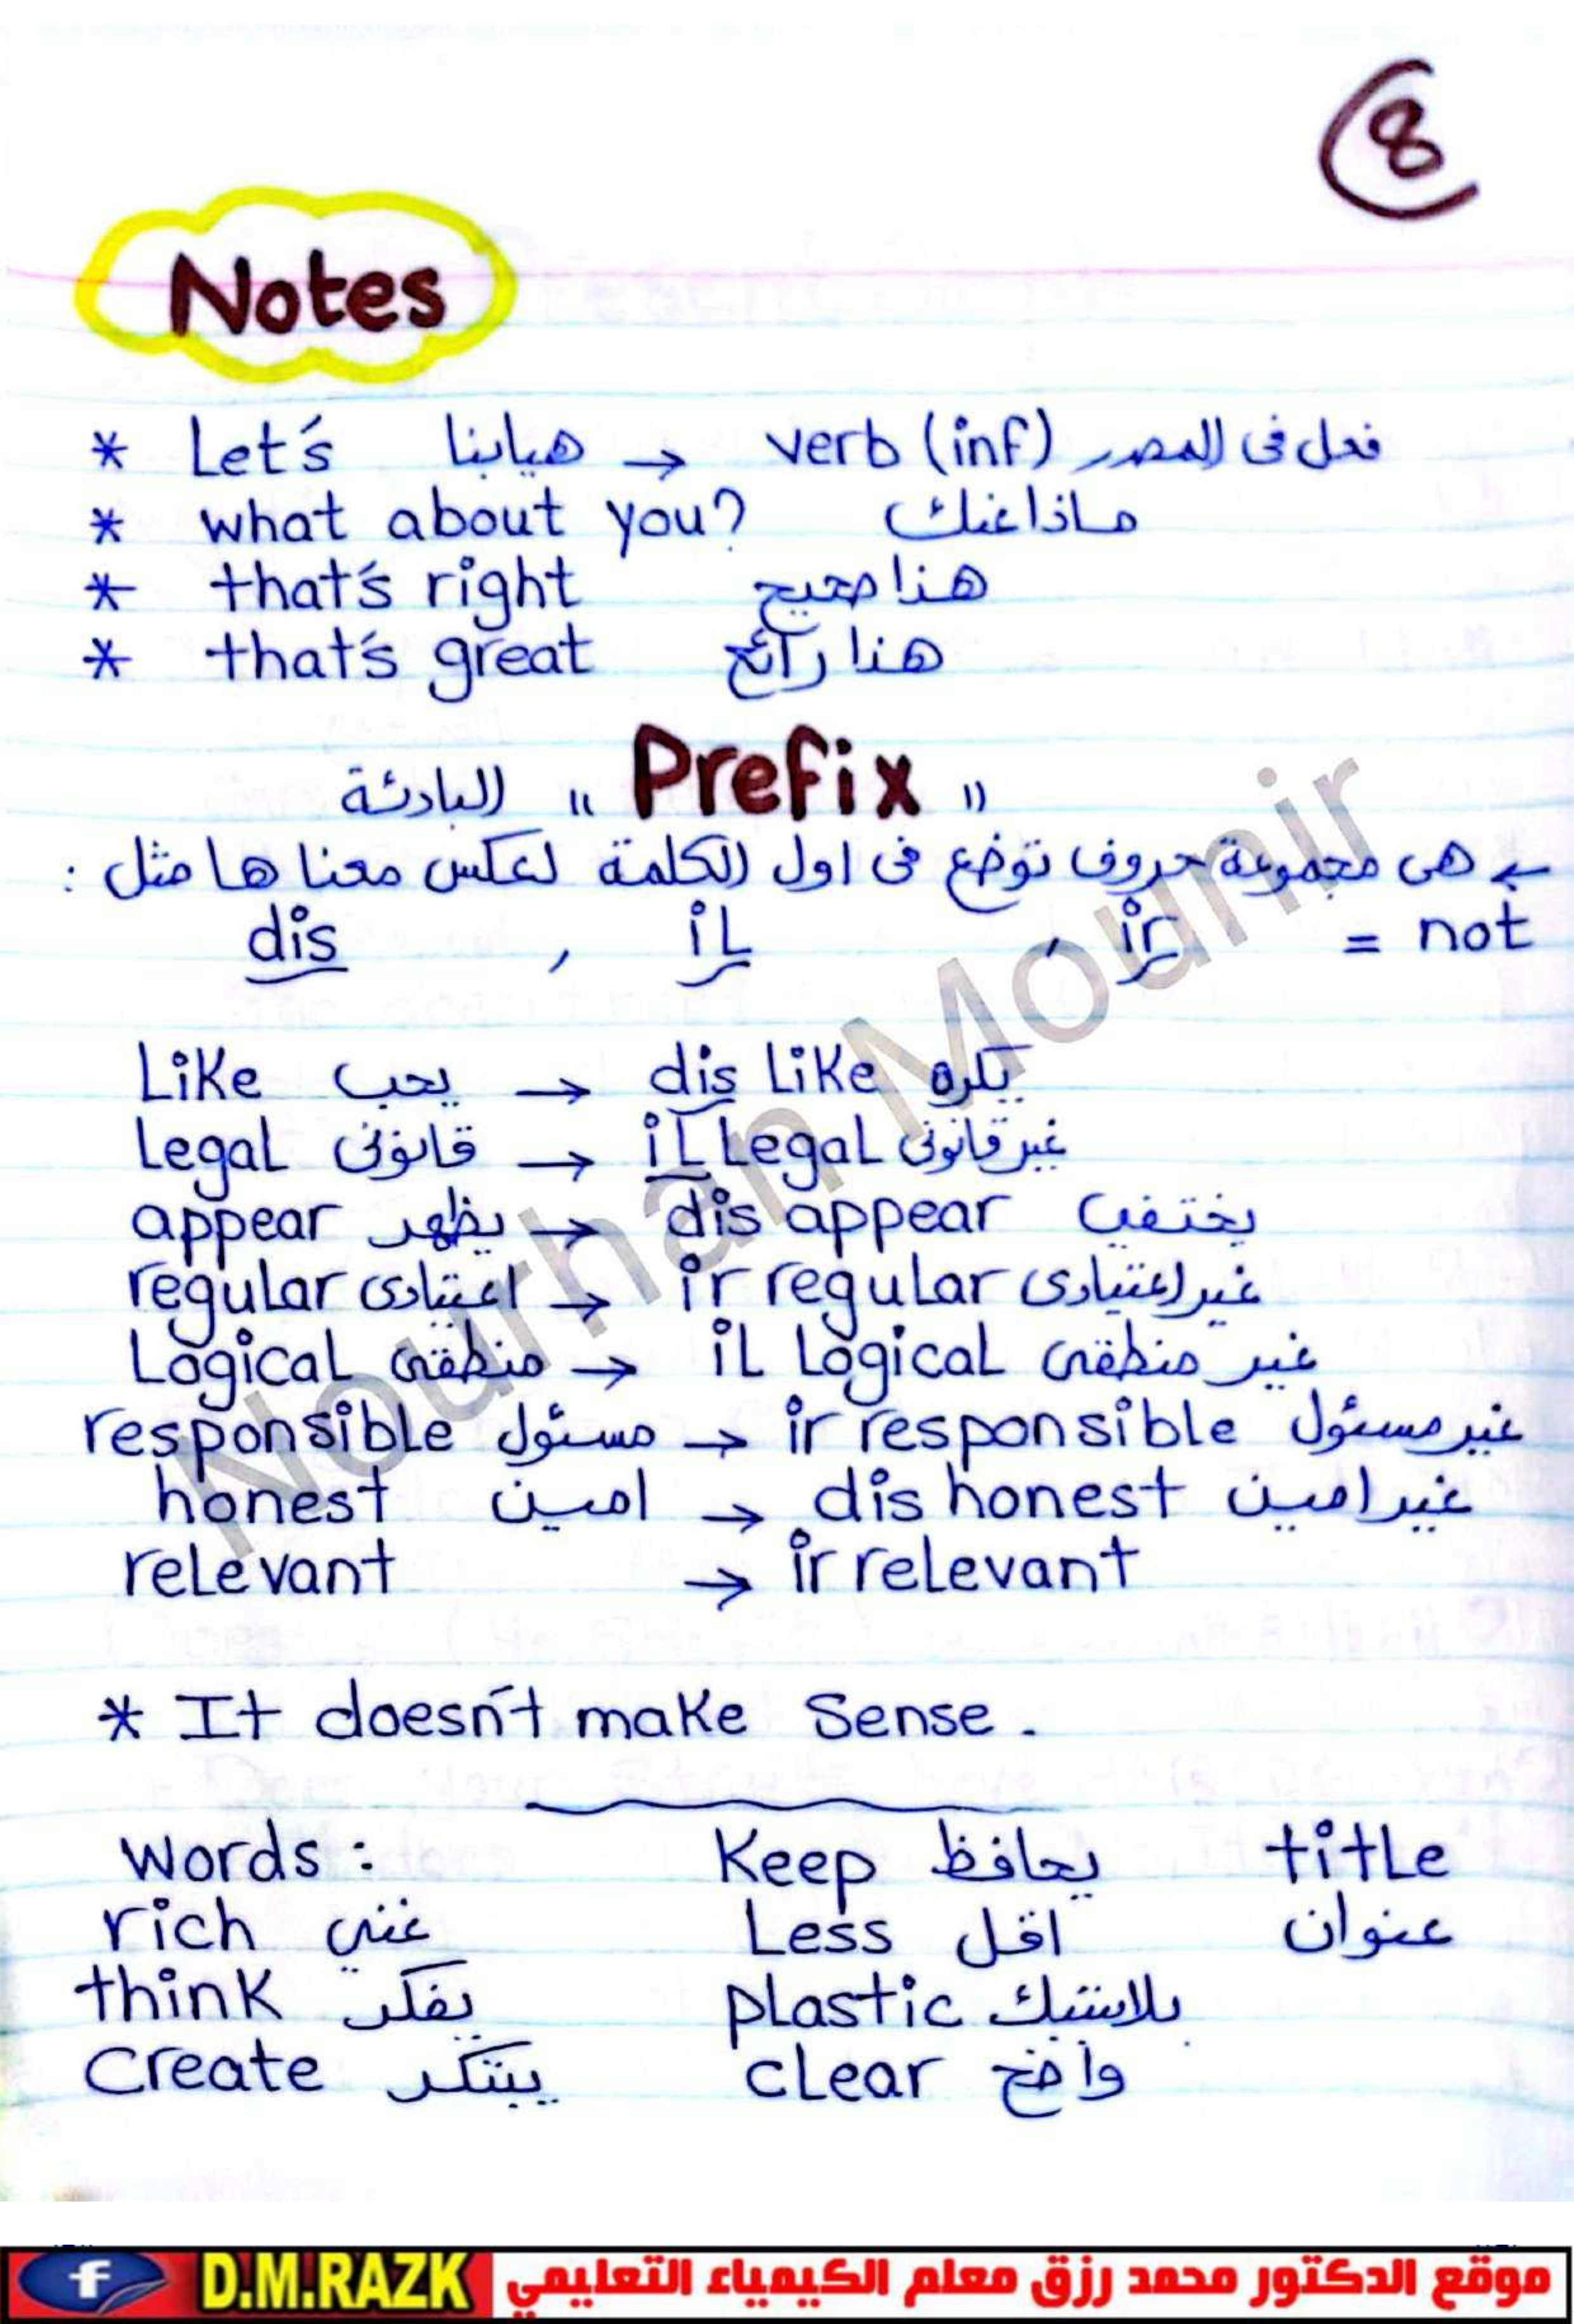 8
Notes
* Let's هيا بنا → verb (inf) فعل فى المصدر
* what about you? ماذا عنك
* that's right هذا صحيح
* that's great هذا رائع
" Prefix " البادئة
هى مجموعة حروف توضع فى اول الكلمة لعكس معناها مثل :
dis , il , ir = not
Like يحب → dis like يكره
Legal قانونى → il legal غير قانونى
appear يظهر → dis appear يختفى
regular اعتيادى → ir regular غير اعتيادى
Logical منطقى → il logical غير منطقى
responsible مسئول → ir responsible غير مسئول
honest امين → dis honest غير امين
relevant → ir relevant
* It doesn't make Sense .
words : Keep يحافظ title
rich غني Less اقل عنوان
think يفكر plastic بلاستيك
Create يبتكر clear واضح
Nourhan Mounir
f D.M.RAZK موقع الدكتور محمد رزق معلم الكيمياء التعليمي